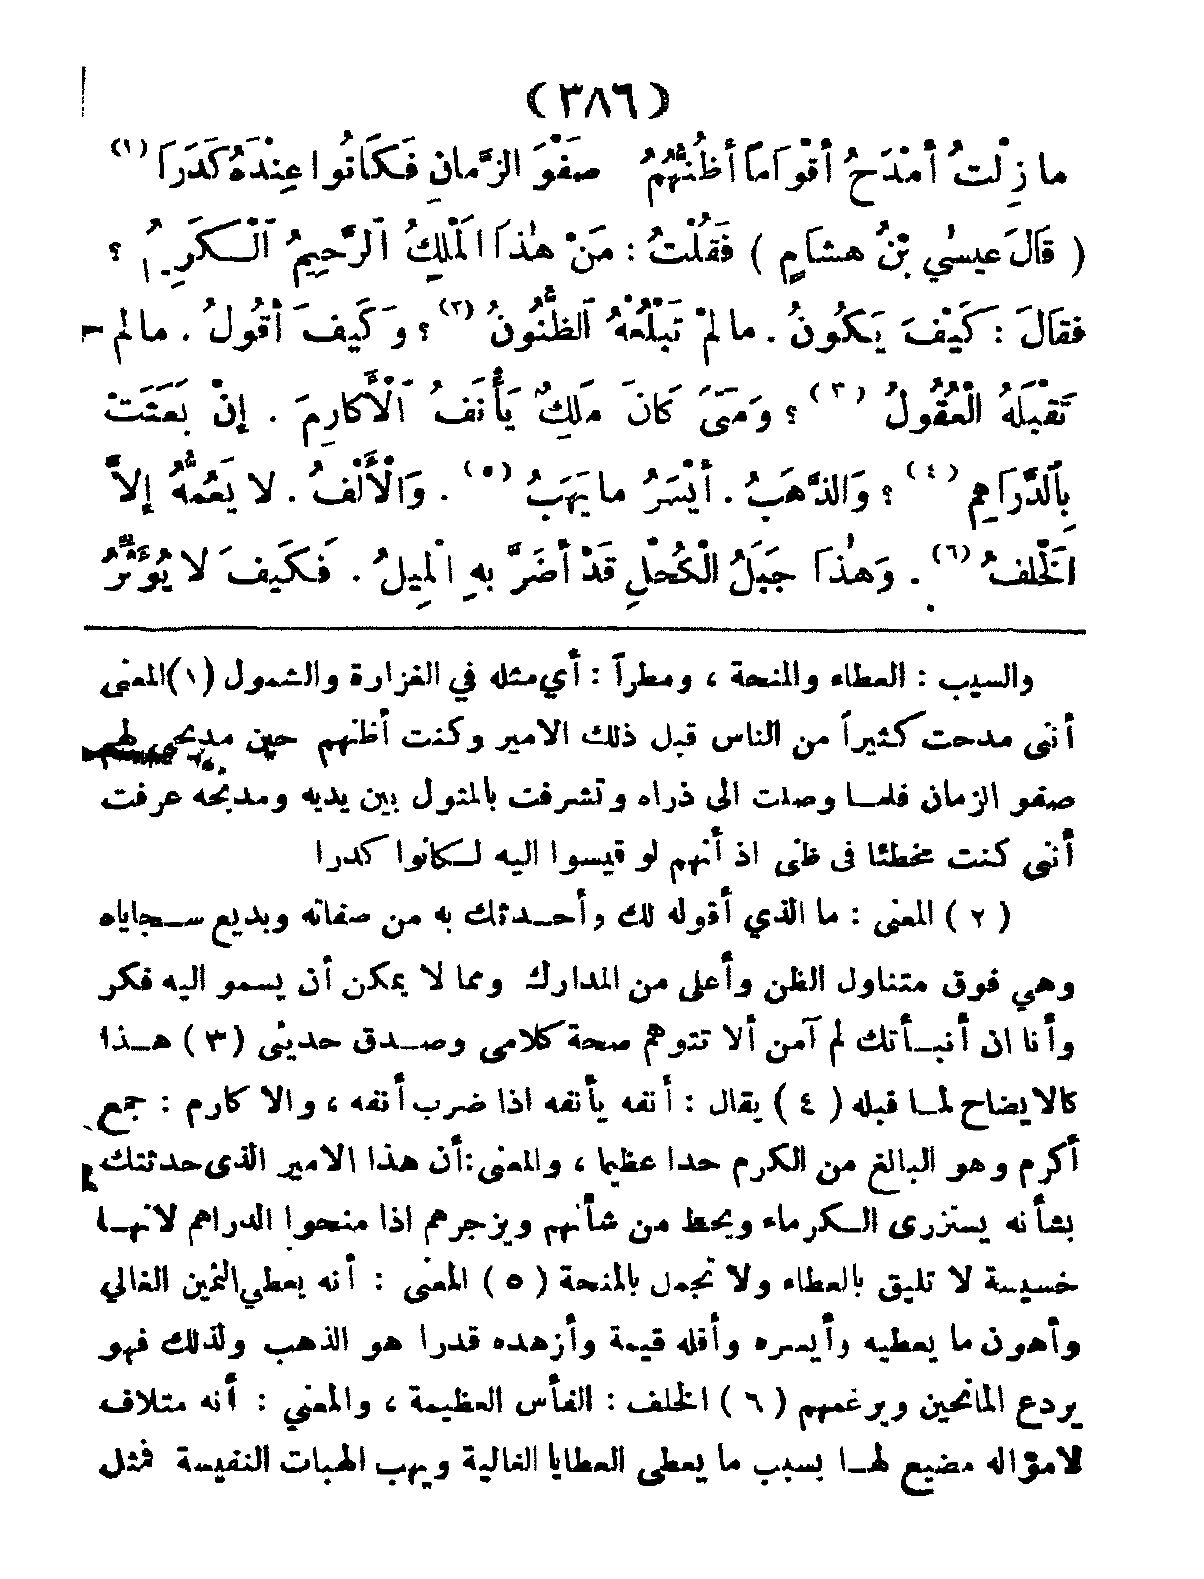 (٣٨٦)
ما زِلْتُ أَمْدَحُ أَقْوَاماً أَظُنُّهُمُ صَفْوَ الزَّمانِ فَكَانُوا عِنْدَهُ كَدَرَا (١)
( قَالَ عيسٰى بْنُ هشَامٍ ) فَقُلْتُ : مَنْ هٰذَا الْمَلِكُ الرَّحِيمُ الْكَرِيمُ ؟
فقَالَ : كَيْفَ يَكُونُ . ما لمْ تَبْلُغْهُ الظُّنُونُ (٢) ؟ وَكَيفَ أَقُولُ . ما لم
تَقْبَلهُ الْعُقُولُ (٣) ؟ وَمَتَى كَانَ مَلِكٌ يَأْنَفُ الْأَكارِمَ . إنْ بَعَثَتْ
بِالدَّرَاهِمِ (٤) ؟ وَالذَّهَبُ . أَيْسَرُ ما يَهَبُ (٥) . وَالْأَلْفُ . لا يَعُمُّهُ إلاَّ
الخَلْفُ (٦) . وَهٰذَا جَبَلُ الْكُحْلِ قَدْ أَضَرَّ بهِ الْمِيلُ . فَكَيفَ لا يُؤَثِّرُ
والسيب : العطاء والمنحة ، ومطراً : أي مثله في الغزارة والشمول (١) المعنى
أننى مدحت كثيراً من الناس قبل ذلك الامير وكنت أظنهم حين مديحى لهم
صفو الزمان فلمـا وصلت الى ذراه وتشرفت بالمثول بين يديه ومدبحه عرفت
أننى كنت مخطئا فى ظنى اذ أنهم لو قيسوا اليه لـكانوا كدرا
( ٢ ) المعنى : ما الذي أقوله لك وأحـدثك به من صفاته وبديع سـجاياه
وهي فوق متناول الظن وأعلى من المدارك ومما لا يمكن أن يسمو اليه فكر
وأنا ان أنبـأتك لم آمن ألا تتوهم صحة كلامى وصـدق حديثى (٣) هـذا
كالايضاح لمـا قبله (٤) يقال : أنفه يأنفه اذا ضرب أنفه ، والا كارم : جمع
أكرم وهو البالغ من الكرم حدا عظيما ، والمعنى : أن هذا الامير الذى حدثتك
بشأنه يستزرى الـكرماء ويحط من شأنهم ويزجرهم اذا منحوا الدراهم لانهـا
خسيسة لا تليق بالعطاء ولا تجمل بالمنحة (٥) المعنى : أنه يعطي الثمين الغالي
وأهون ما يعطيه وأيسره وأقله قيمة وأزهده قدرا هو الذهب ولذلك فهو
يردع المانحين ويرغمهم (٦) الخلف : الفأس العظيمة ، والمعني : أنه متلاف
لامواله مضيع لهـا بسبب ما يعطى العطايا الغالية ويهب الهبات النفيسة فمثل